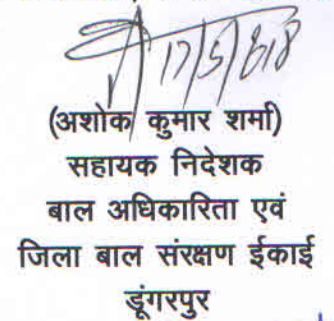 17/5/2018
(अशोक कुमार शर्मा)
सहायक निदेशक
बाल अधिकारिता एवं
जिला बाल संरक्षण ईकाई
डूंगरपुर